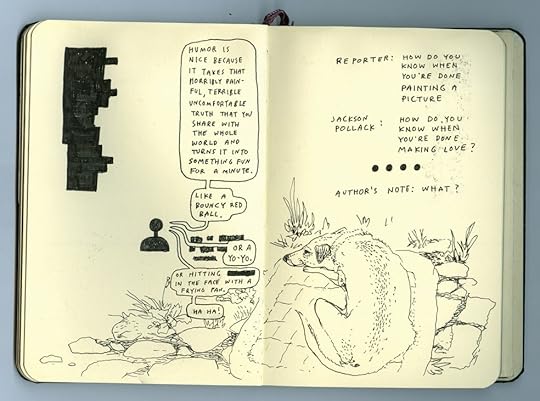 HUMOR IS
NICE BECAUSE
IT TAKES THAT
HORRIBLY PAIN-
FUL, TERRIBLE
UNCOMFORTABLE
TRUTH THAT YOU
SHARE WITH
THE WHOLE
WORLD AND
TURNS IT INTO
SOMETHING FUN
FOR A MINUTE.
LIKE A
BOUNCY RED
BALL.
OR A
YO-YO.
OR HITTING
IN THE FACE WITH A
FRYING PAN.
HA HA!
REPORTER: HOW DO YOU
KNOW WHEN
YOU'RE DONE
PAINTING A
PICTURE
JACKSON HOW DO YOU
POLLACK: KNOW WHEN
YOU'RE DONE
MAKING LOVE?
AUTHOR'S NOTE: WHAT?